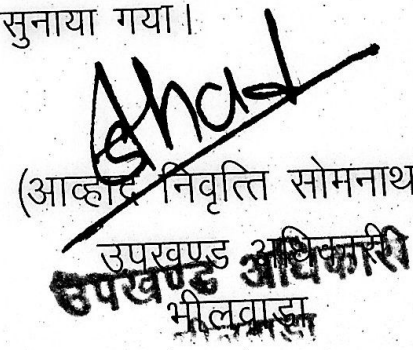 सुनाया गया।
(आव्हाद निवृत्ति सोमनाथ
उपखण्ड अधिकारी
उपखण्ड अधिकारी
भीलवाड़ा